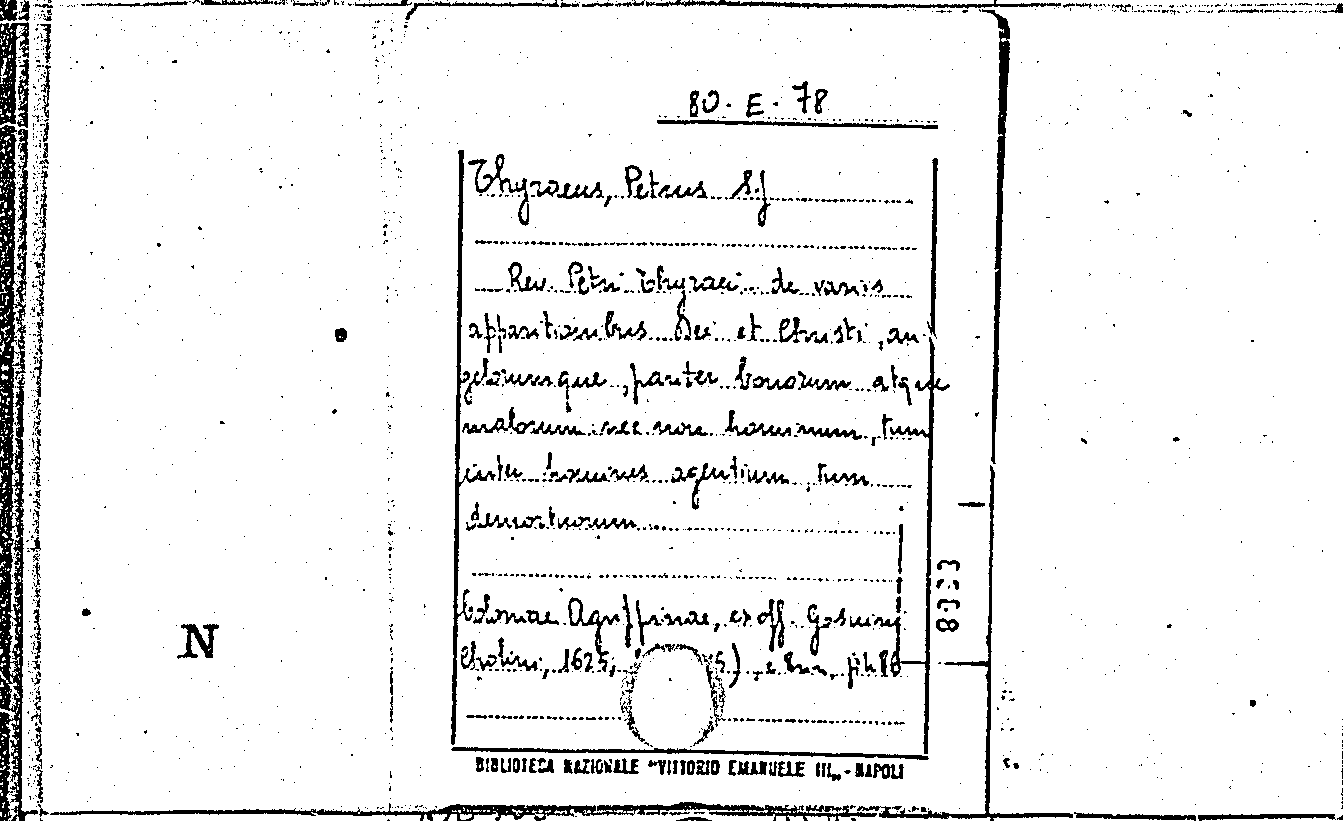 80. E. 78
Thyraeus, Petrus S.J
Rev. Petri Thyraei de variis
apparitionibus Dei et Christi, an
gelorumque, pariter bonorum atque
malorum nec non hominum, tum
inter homines agentium, tum
demortuorum
8033
Coloniae Agrippinae, ex off. Gosvini
Cholini, 1625,
N
BIBLIOTECA NAZIONALE "VITTORIO EMANUELE III„ - NAPOLI